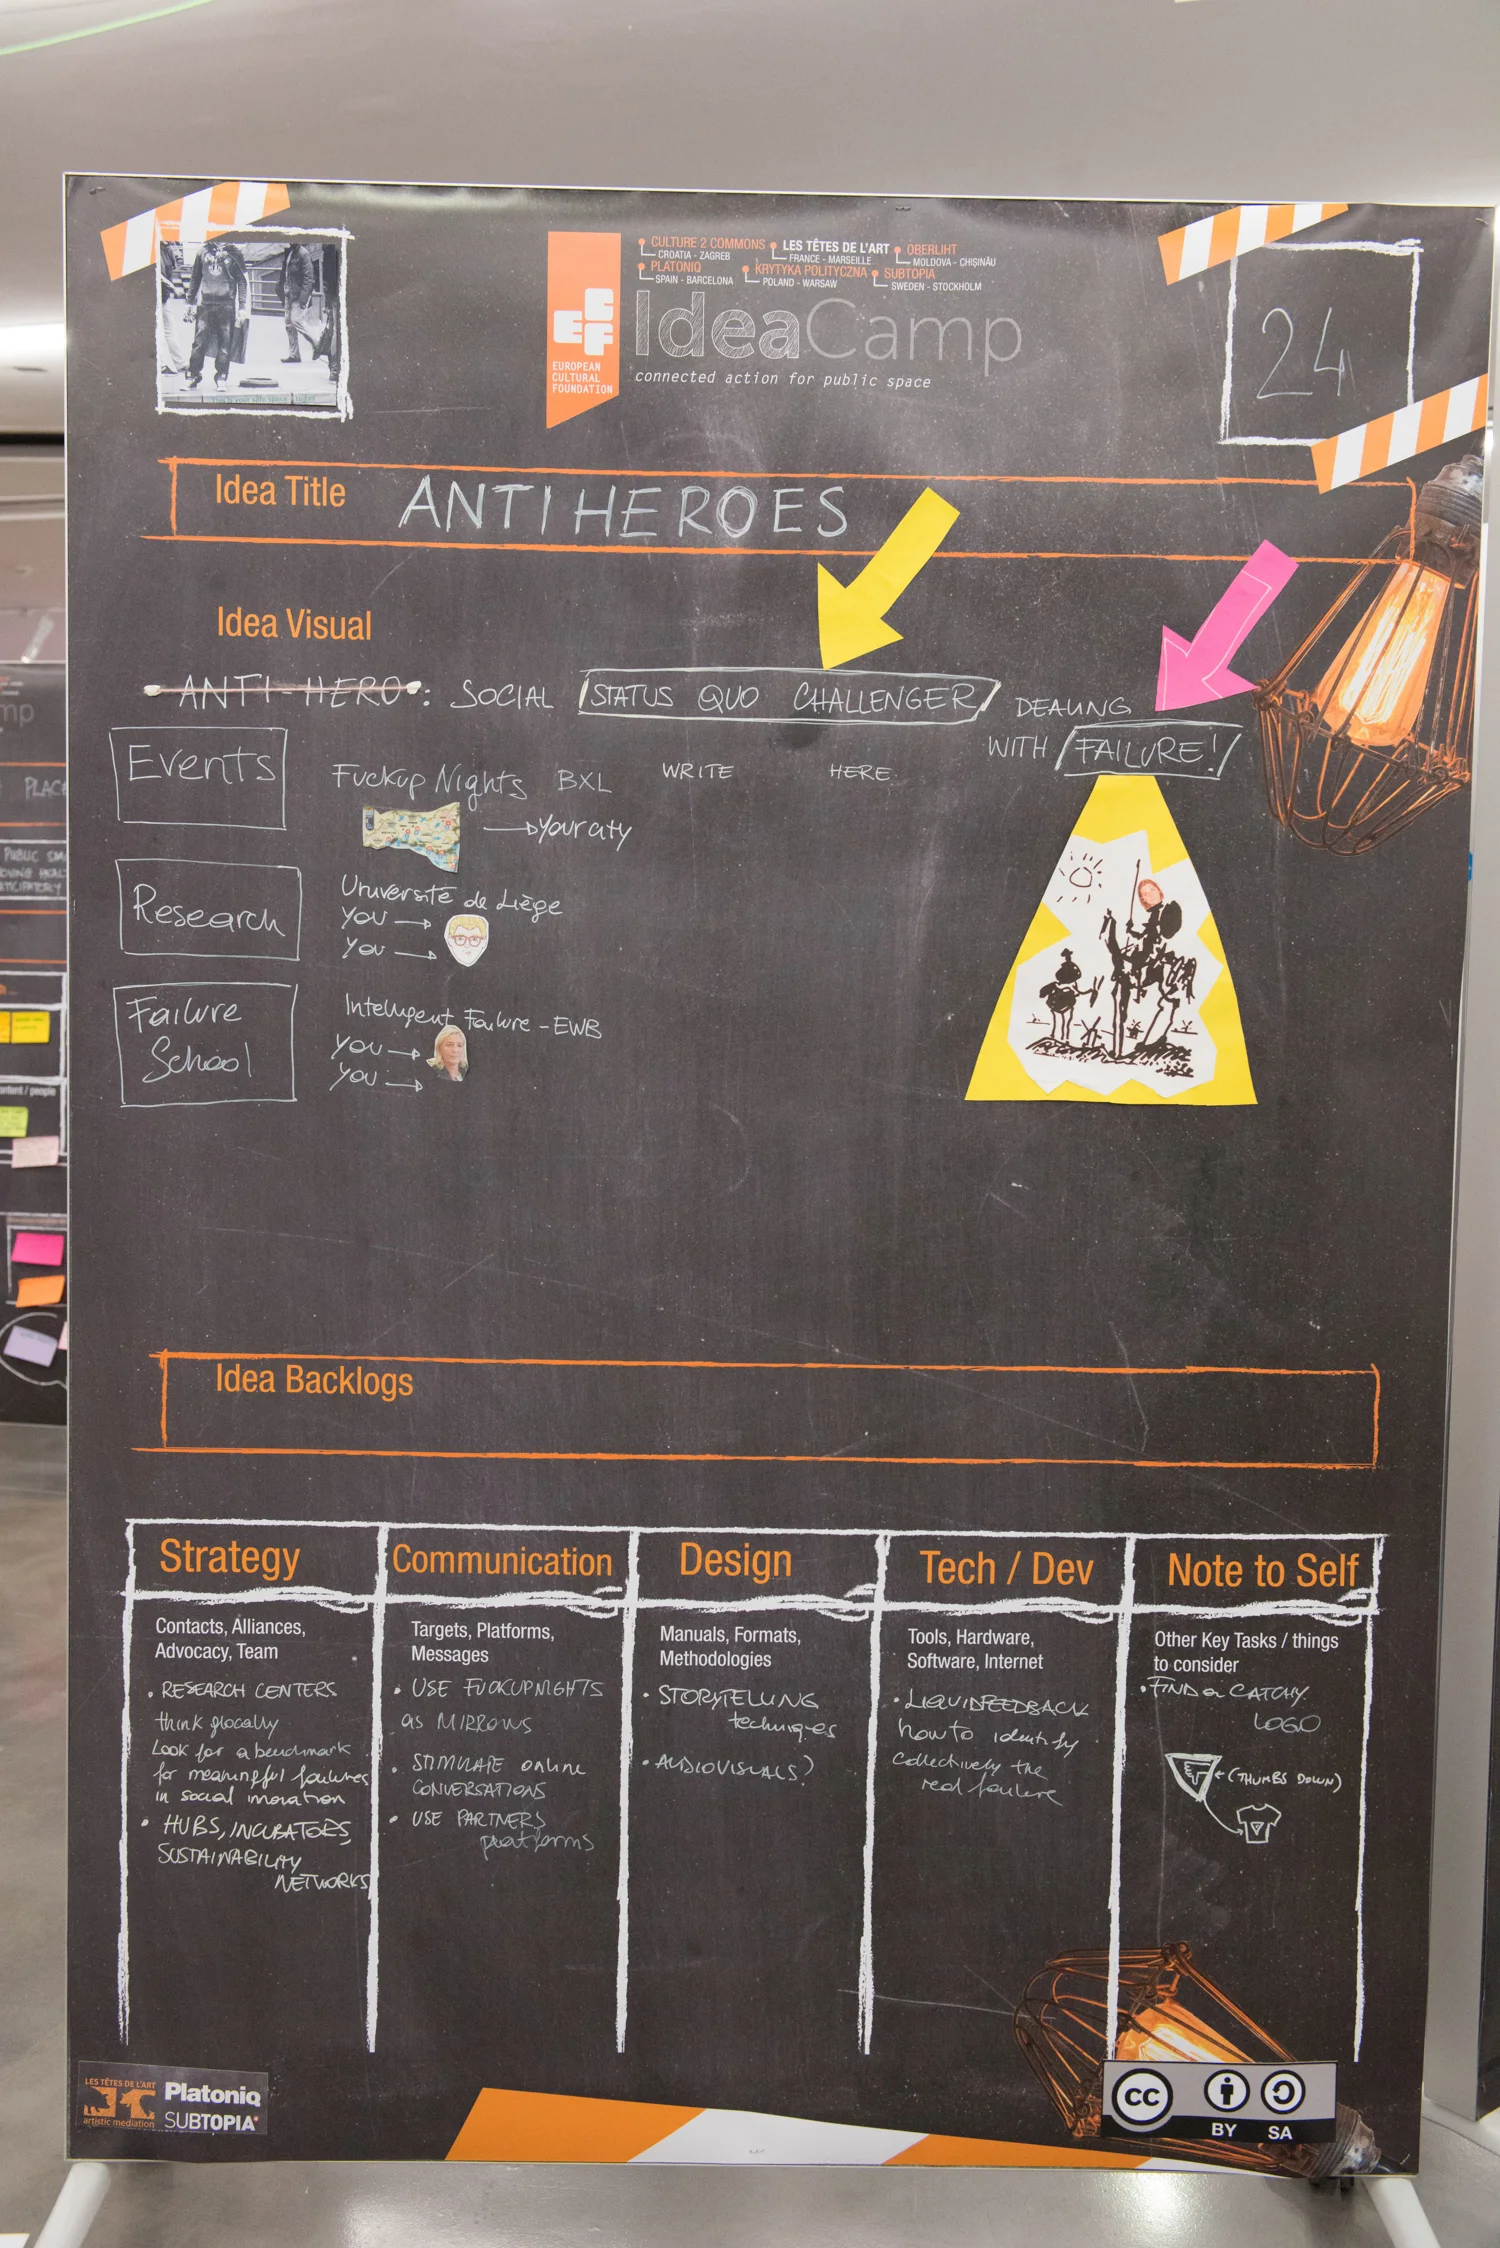 CULTURE 2 COMMONS
CROATIA - ZAGREB
LES TÊTES DE L'ART
FRANCE - MARSEILLE
OBERLIHT
MOLDOVA - CHIȘINĂU
PLATONIQ
SPAIN - BARCELONA
KRYTYKA POLITYCZNA
POLAND - WARSAW
SUBTOPIA
SWEDEN - STOCKHOLM
ECF
EUROPEAN
CULTURAL
FOUNDATION
IdeaCamp
connected action for public space
24
This is your safe space
Idea Title ANTIHEROES
Idea Visual
ANTI-HERO: SOCIAL STATUS QUO CHALLENGER DEALING
WITH FAILURE!
Events
Fuckup Nights BXL WRITE HERE
Your city
Research
Université de Liège
YOU
YOU
Failure
School
Intelligent Failure - EWB
YOU
YOU
Idea Backlogs
Strategy
Contacts, Alliances,
Advocacy, Team
• RESEARCH CENTERS
think glocally
Look for a benchmark
for meaningful failures
in social inovation
• HUBS, INCUBATORS,
SUSTAINABILITY
NETWORKS
Communication
Targets, Platforms,
Messages
• USE FUCKUPNIGHTS
as MIRROWS
• STIMULATE online
CONVERSATIONS
• USE PARTNERS
platforms
Design
Manuals, Formats,
Methodologies
• STORYTELLING
techniques
• AUDIOVISUALS?
Tech / Dev
Tools, Hardware,
Software, Internet
• LIQUIDFEEDBACK
how to identify
collectively the
real failure
Note to Self
Other Key Tasks / things
to consider
• FIND a CATCHY
LOGO
(THUMBS DOWN)
LES TÊTES DE L'ART
artistic mediation
Platoniq
SUBTOPIA
cc
BY SA
PLAC
PUBLIC SM
content / people
mp